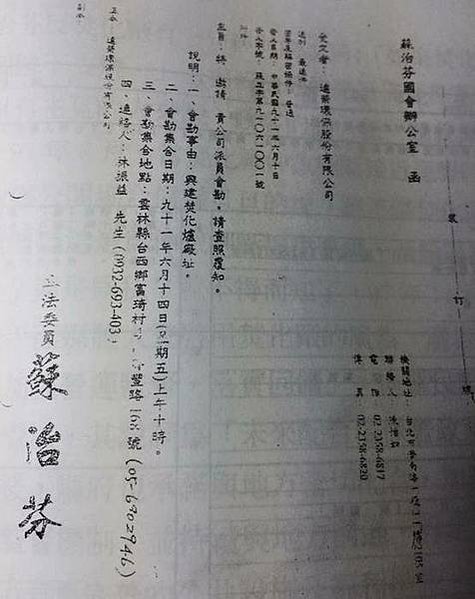 蘇治芬國會辦公室 函
機關地址：台北市
聯絡人：
電 話：02-2358-6817
傳 真：02-2358-6820
受文者：遠榮環保股份有限公司
速別：最速件
密等及解密條件：普通
發文日期：中華民國九十一年六月十日
發文字號：蘇立字第九一０六一００一號
附件：
主旨：特 邀請 貴公司派員會勘，請查照覆知。
說明：一、會勘事由：興建焚化爐廠址。
二、會勘集合日期：九十一年六月十四日(星期五)上午十時。
三、會勘集合地點：雲林縣台西鄉富琦村 豐路168號 (05-6902946)
四、連絡人：林振益 先生(0932-693-403)
正本：遠榮環保股份有限公司
副本：
立法委員 蘇治芬
裝 訂 線